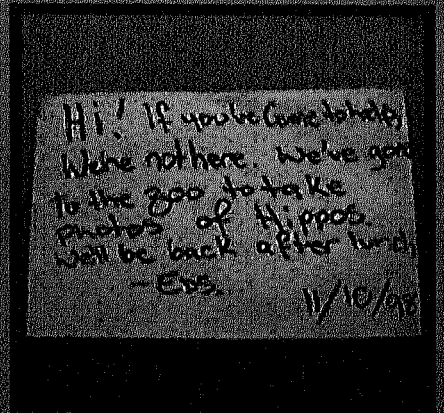 Hi! If you've come to help,
We're not here. We've gone
to the zoo to take
photos of Hippos.
We'll be back after lunch
- Eds.
11/10/98